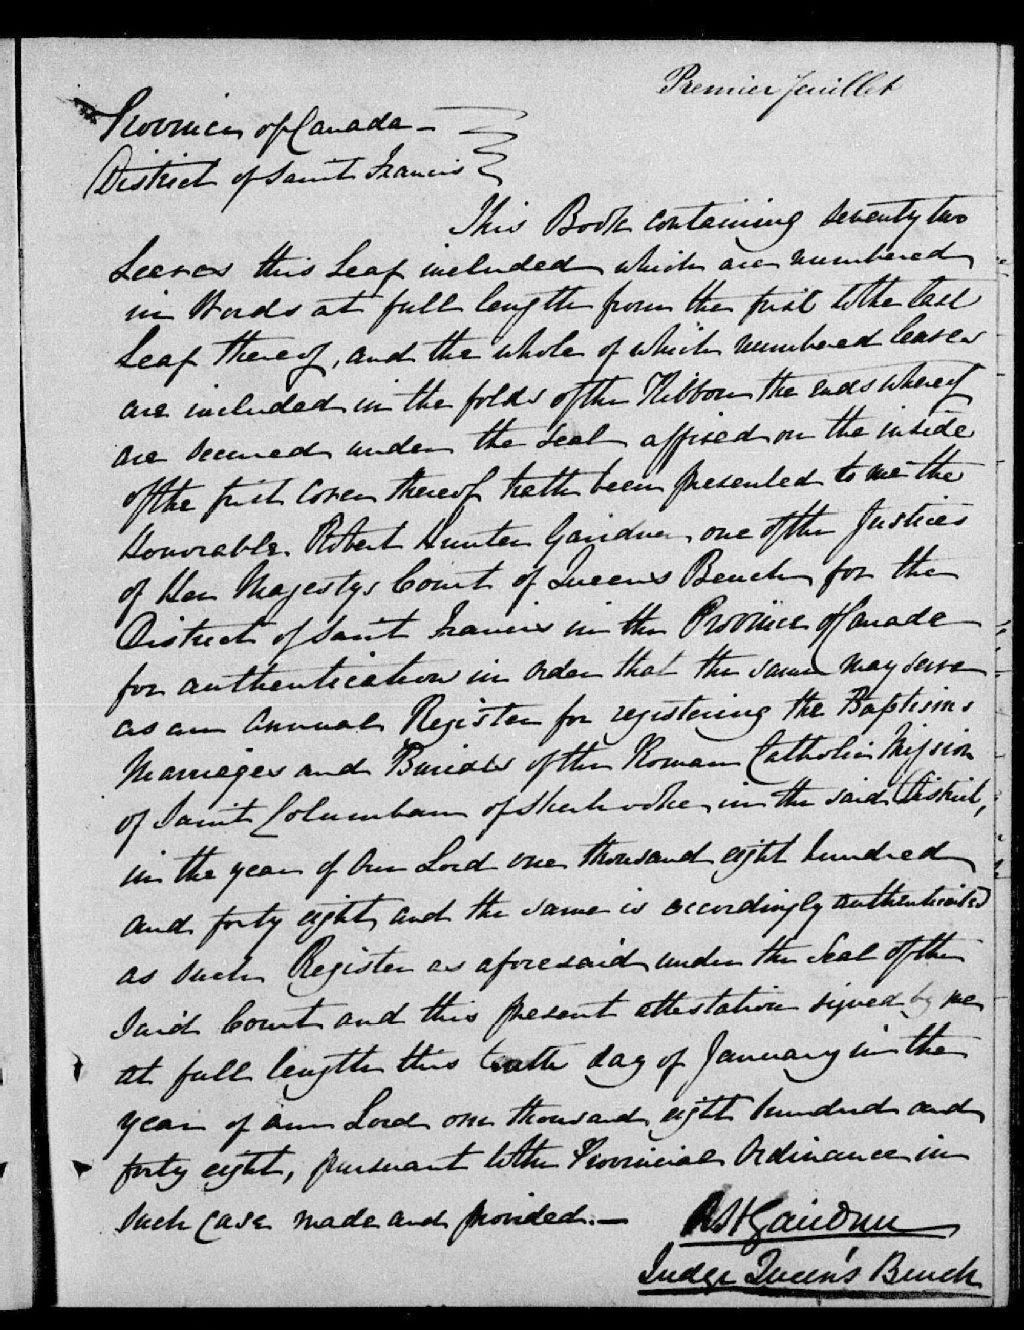 Premier feuillet
Province of Canada —
District of Saint Francis
This Book containing seventy two
Leeves this Leaf included which are numbered
in Words at full length from the first to the last
Leaf thereof, and the whole of which numbered leaves
are included in the folds of the Ribbon the ends whereof
are secured under the seal affixed on the inside
of the first Cover thereof hath been presented to me the
Honorable Robert Hunter Gairdner, one of the Justices
of Her Majestys Court of Queens Bench for the
District of Saint Francis in the Province of Canada
for authentication in order that the same may serve
as an Annual Register for registering the Baptisms
Marriages and Burials of the Roman Catholic Mission
of Saint Columban of Sherbrooke in the said District,
in the year of Our Lord one thousand eight hundred
and forty eight, and the same is accordingly authenticated
as such Register as aforesaid under the Seal of the
said Court and this present attestation signed by me
at full length this tenth day of January in the
year of our Lord one thousand eight hundred and
forty eight, pursuant to the Provincial Ordinance in
such case made and provided. —
R H Gairdner
Judge Queen's Bench